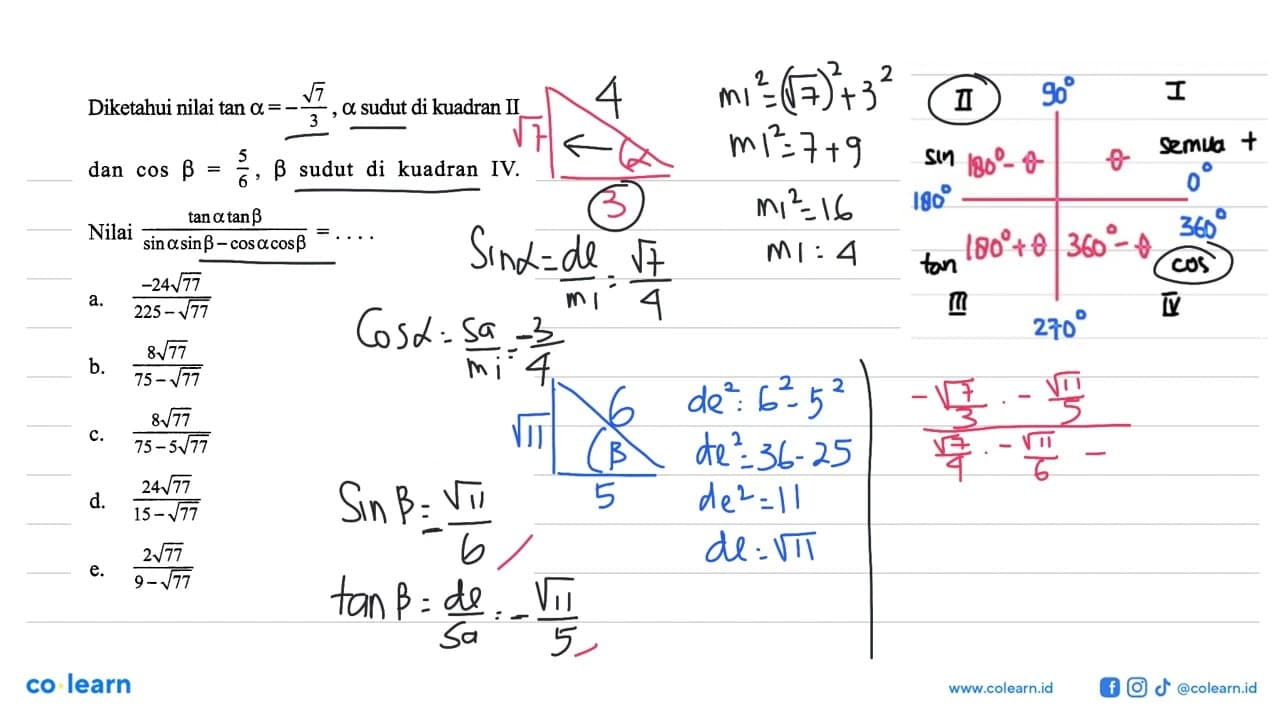 Diketahui nilai tan α = −√7/3, α sudut di kuadran II
dan cos β = 5/6, β sudut di kuadran IV.
Nilai (tan α tan β)/(sin α sin β − cos α cos β) = ....
a. (−24√77)/(225 − √77)
b. (8√77)/(75 − √77)
c. (8√77)/(75 − 5√77)
d. (24√77)/(15 − √77)
e. (2√77)/(9 − √77)
4
√7
α
3
mi² = (√7)² + 3²
mi² = 7 + 9
mi² = 16
mi : 4
Sin α = de/mi = √7/4
Cos α = sa/mi = −3/4
√11
6
β
5
de² = 6² − 5²
de² = 36 − 25
de² = 11
de = √11
Sin β = −√11/6
tan β = de/sa = −√11/5
II 90° I
sin 180° − θ θ semua +
180° 0°
360°
tan 180° + θ 360° − θ cos
III IV
270°
−√7/3 . −√11/5
√7/4 . −√11/6 −
co learn
www.colearn.id
@colearn.id